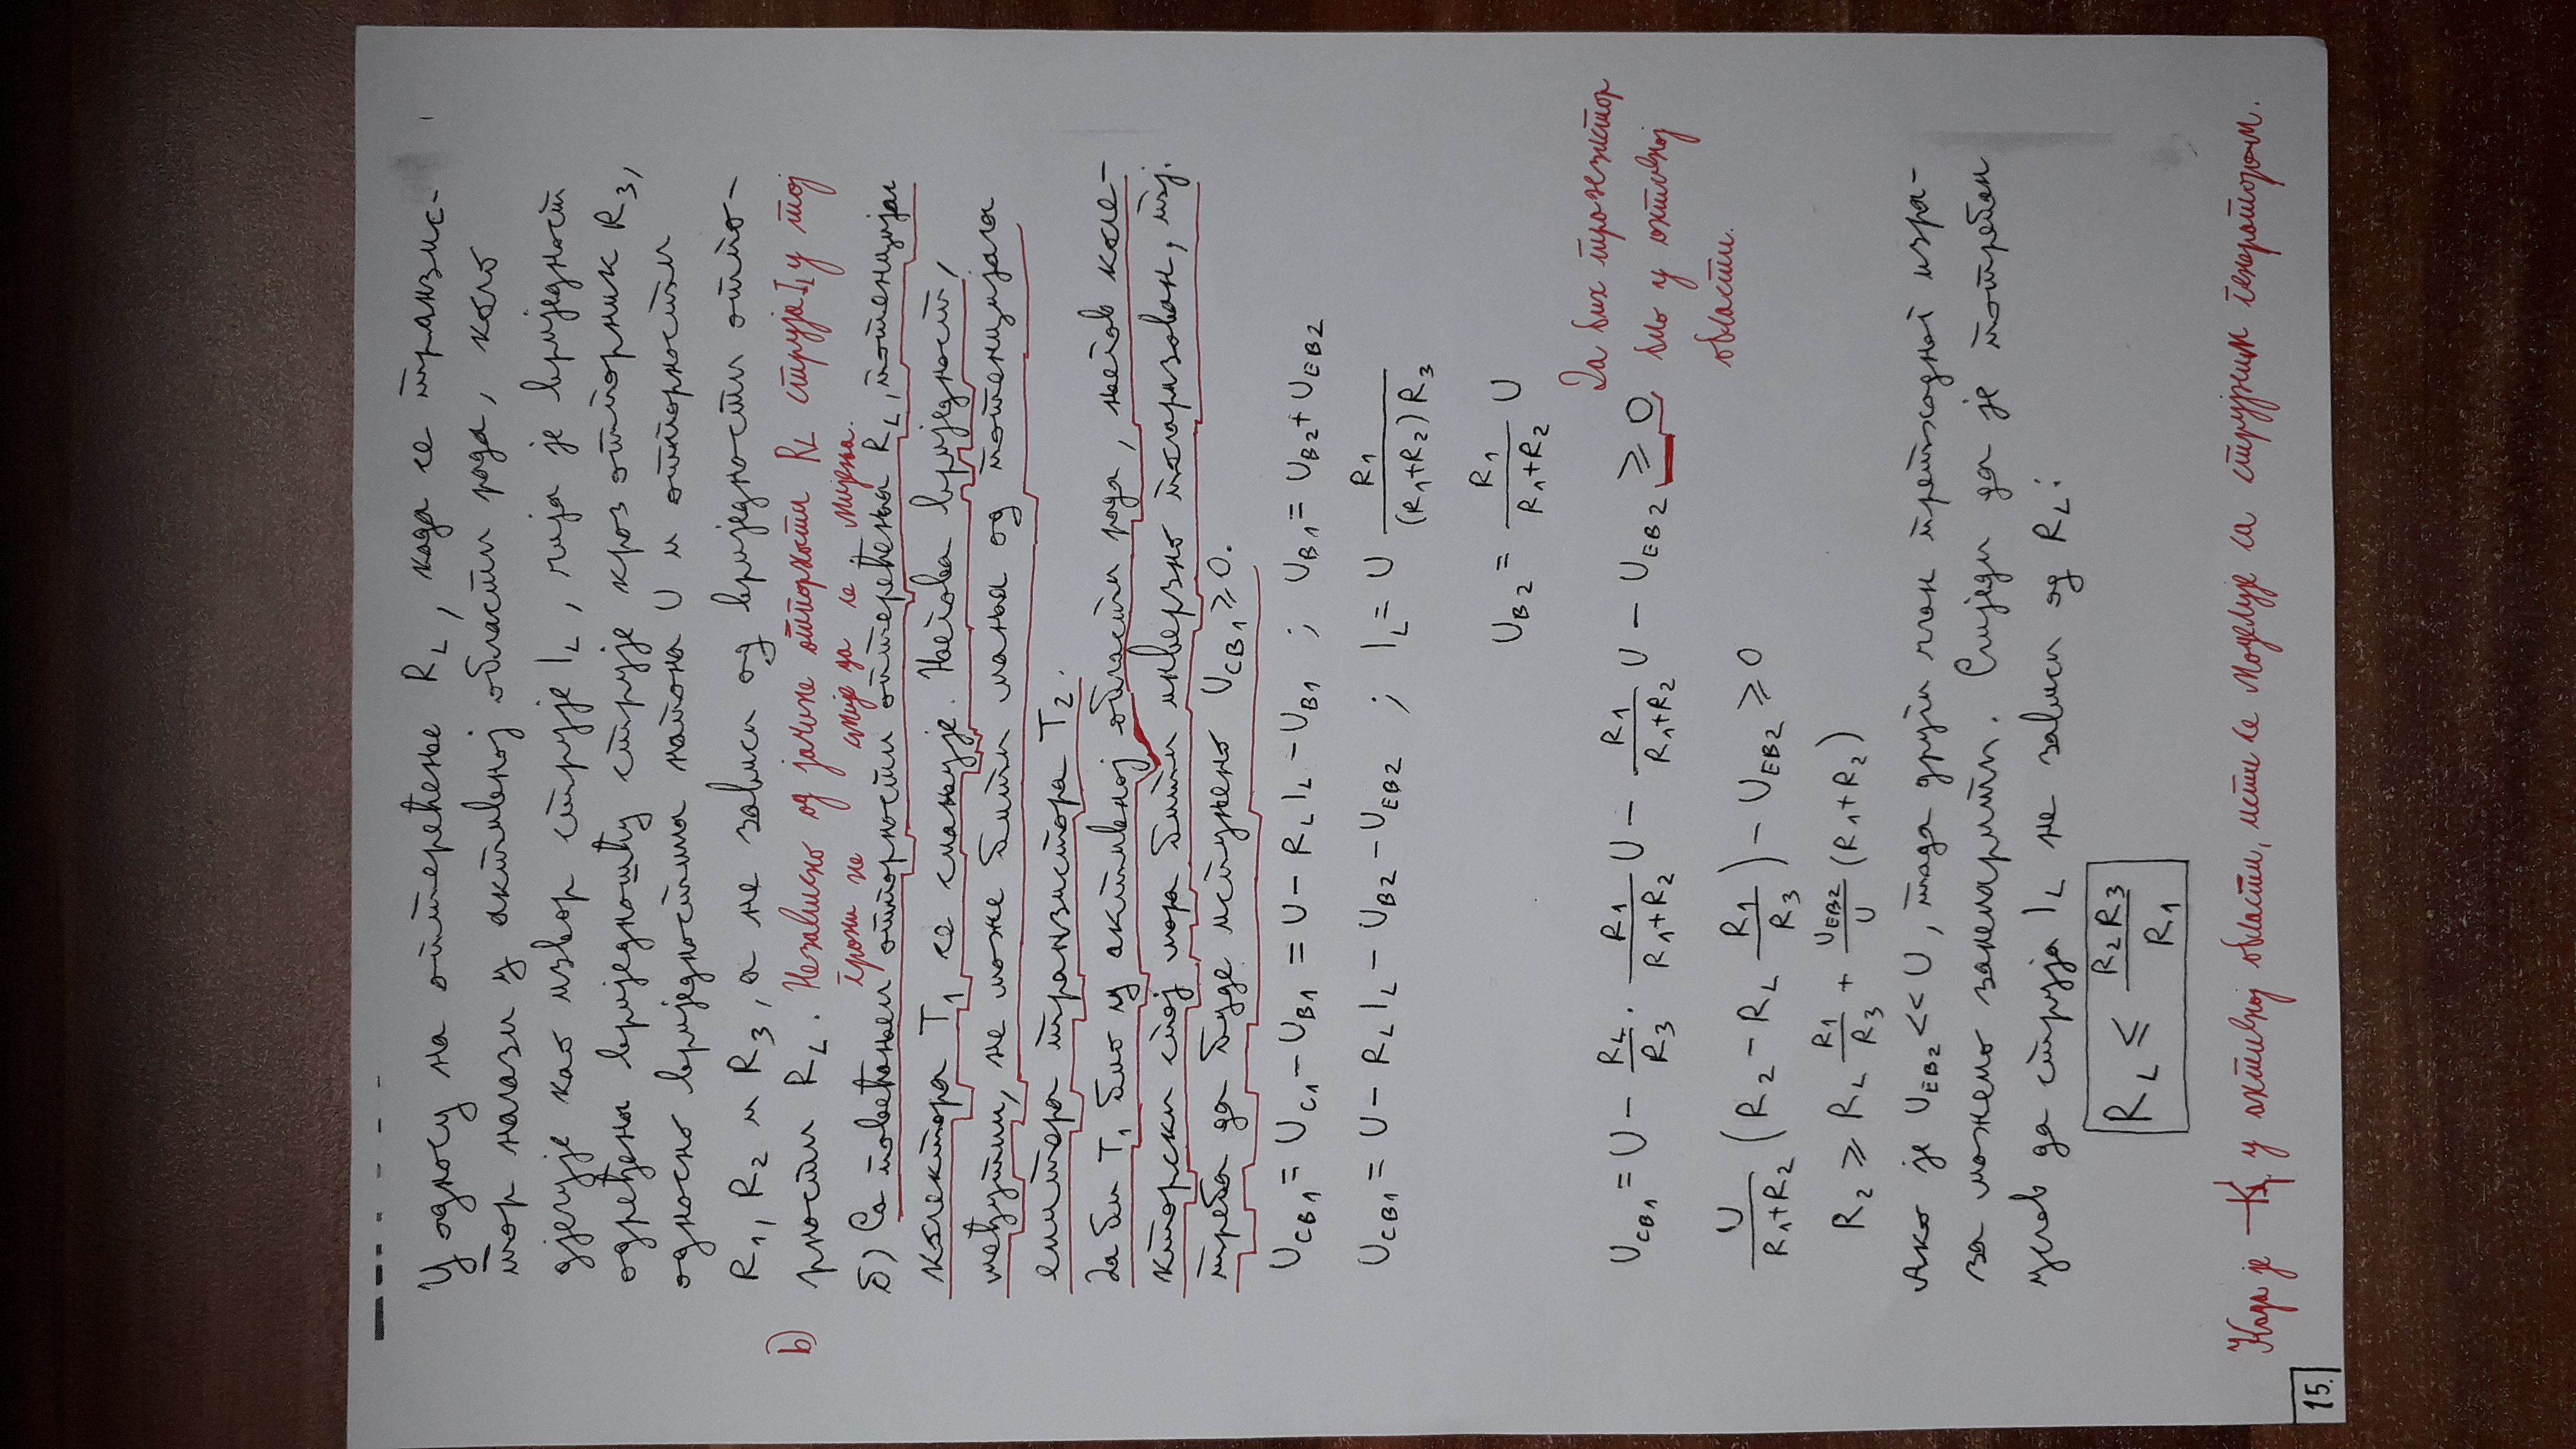 У односу на оптерећење R_L, када се транзис-
тор налази у активној области рада, коло
дјелује као извор струје I_L, чија је вриједност
одређена вриједношћу струје кроз отпорник R_3,
односно вриједностима напона U и отпорности
R_1, R_2 и R_3, а не зависи од вриједности отпо-
b) рности R_L. Независно од јачине отпорности R_L струја I_L у тој
грани не смије да се мијења.
б) Са повећањем отпорности оптерећења R_L, потенцијал
колектора T_1 се смањује. Његова вриједност,
међутим, не може бити мања од потенцијала
емитера транзистора T_2.
Да би T_1 био у активној области рада, његов коле-
кторски спој мора бити инверзно поларизован, тј.
треба да буде испуњено U_CB1 ≥ 0.
U_CB1 = U_C1 - U_B1 = U - R_L I_L - U_B1 ; U_B1 = U_B2 + U_EB2
U_CB1 = U - R_L I_L - U_B2 - U_EB2 ; I_L = U R_1 / ((R_1+R_2) R_3)
U_B2 = R_1 / (R_1+R_2) U
U_CB1 = U - R_L/R_3 · R_1/(R_1+R_2) U - R_1/(R_1+R_2) U - U_EB2 ≥ 0
Да бих транзистор
био у активној
области.
U/(R_1+R_2) (R_2 - R_L R_1/R_3) - U_EB2 ≥ 0
R_2 ≥ R_L R_1/R_3 + U_EB2/U (R_1+R_2)
Ако је U_EB2 << U, тада други члан претходног изра-
за можемо занемарити. Слиједи да је потребан
услов да струја I_L не зависи од R_L:
R_L ≤ R_2 R_3 / R_1
Када је у активној области, исти се моделује са струјним генератором.
15.